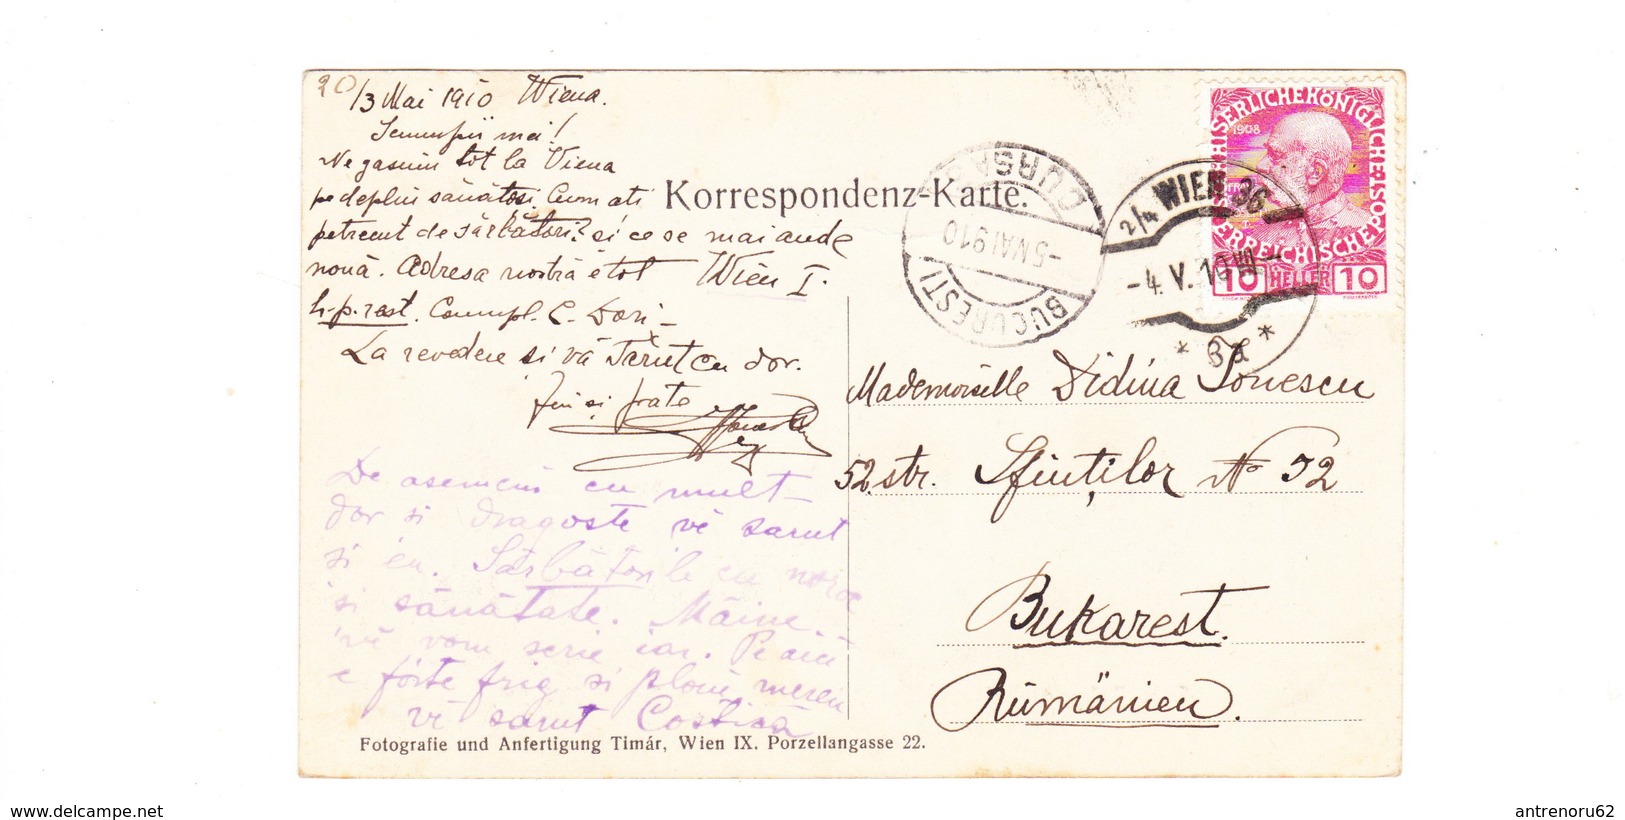 20/3 Mai 1910 Wiena.
Scumpii mei!
Ne gasim tot la Viena
pe deplin sănătosi. Cum ati
petrecut de sărbători? si ce se mai aude
nouă. Adresa nostră e tot Wien I.
h-p.rest. Compl. C. Dori
La revedere si vă sărut cu dor.
fiu si frate
De asemeni cu mult
dor si dragoste vĕ sarut
si eu. Sărbătorile cu noroc
si sănătate. Mâine
vĕ vom scrie iar. Pe aici
e fórte frig si plouă mereu
vĕ sarut Costică
Korrespondenz-Karte.
BUCURESTI
-5 MAI 910
CURSA
2/4 WIEN 36
-4. V. 10 VIII-
* 3a *
KAISERLICHE KÖNIGLICHE ÖSTERREICHISCHE POST
1908
10 HELLER 10
Mademoiselle Didina Ionescu
52. str. Sfinților No 52
Bukarest.
Rumänien.
Fotografie und Anfertigung Timár, Wien IX. Porzellangasse 22.
www.delcampe.net
antrenoru62